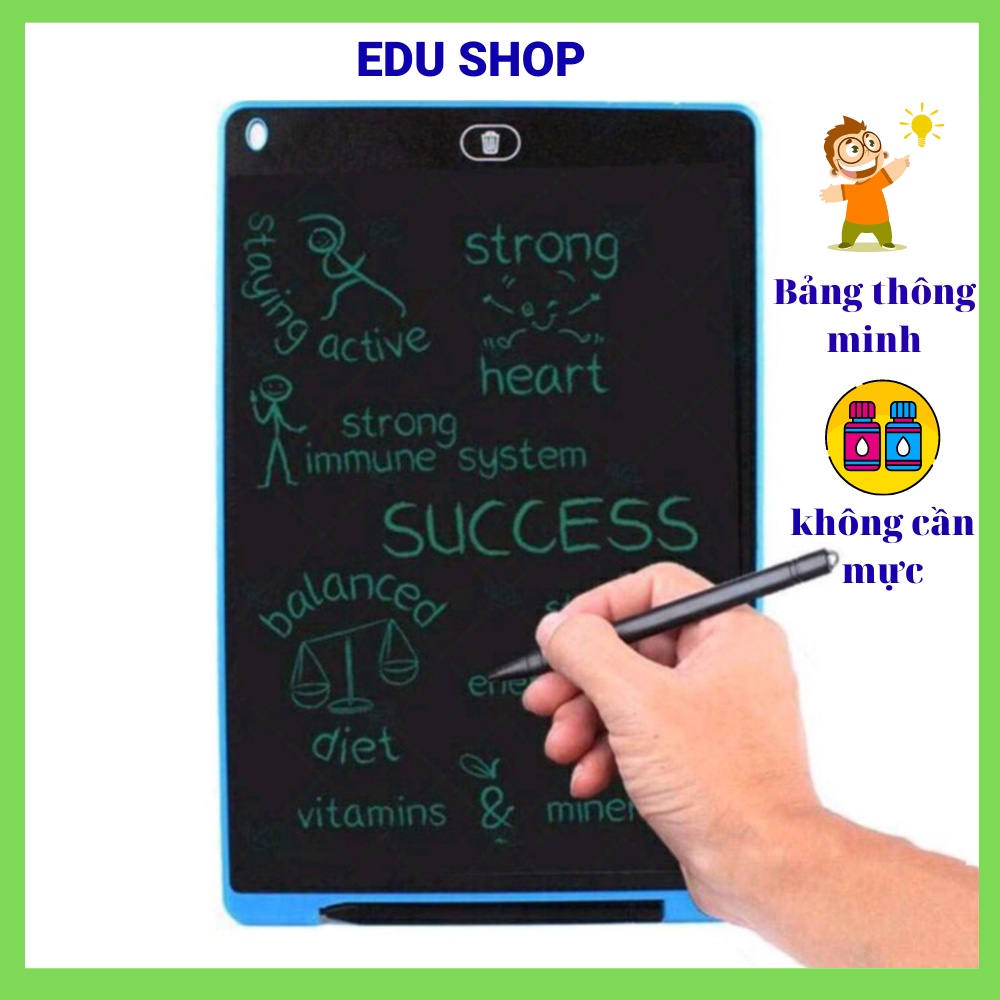 EDU SHOP
Staying
active
strong
heart
strong
immune system
SUCCESS
balanced
diet
vitamins & 
Bảng thông
minh
không cần
mực